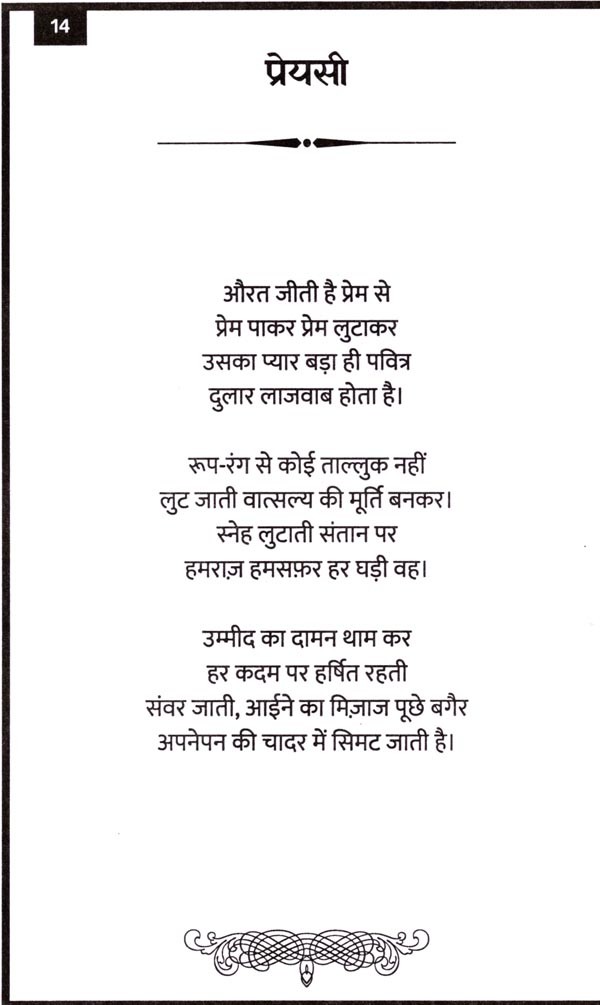 14
प्रेयसी
औरत जीती है प्रेम से
प्रेम पाकर प्रेम लुटाकर
उसका प्यार बड़ा ही पवित्र
दुलार लाजवाब होता है।
रूप-रंग से कोई ताल्लुक नहीं
लुट जाती वात्सल्य की मूर्ति बनकर।
स्नेह लुटाती संतान पर
हमराज़ हमसफ़र हर घड़ी वह।
उम्मीद का दामन थाम कर
हर कदम पर हर्षित रहती
संवर जाती, आईने का मिज़ाज पूछे बगैर
अपनेपन की चादर में सिमट जाती है।